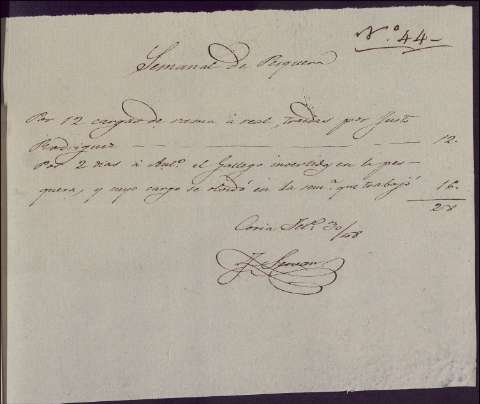 N.º 44-
Semanal de Pesquera
Por 12 cargas de rama á real, traidas por Just.º
Rodriguez 12.
Por 2 dias á Ant.º el Gallego invertidos en la pes-
quera, y cuyo cargo se en la sem.ª que trabajó 16.
28
Coria 30/48